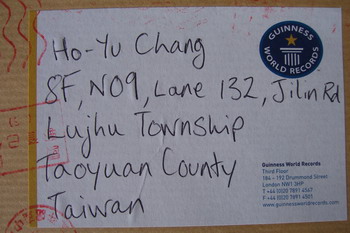 Ho-Yu Chang
8F, NO9, Lane 132, Jilin Rd
Lujhu Township
Taoyuan County
Taiwan
GUINNESS
WORLD RECORDS
Guinness World Records
Third Floor
184 - 192 Drummond Street
London NW1 3HP
T +44 (0)20 7891 4567
F +44 (0)20 7891 4501
www.guinnessworldrecords.com